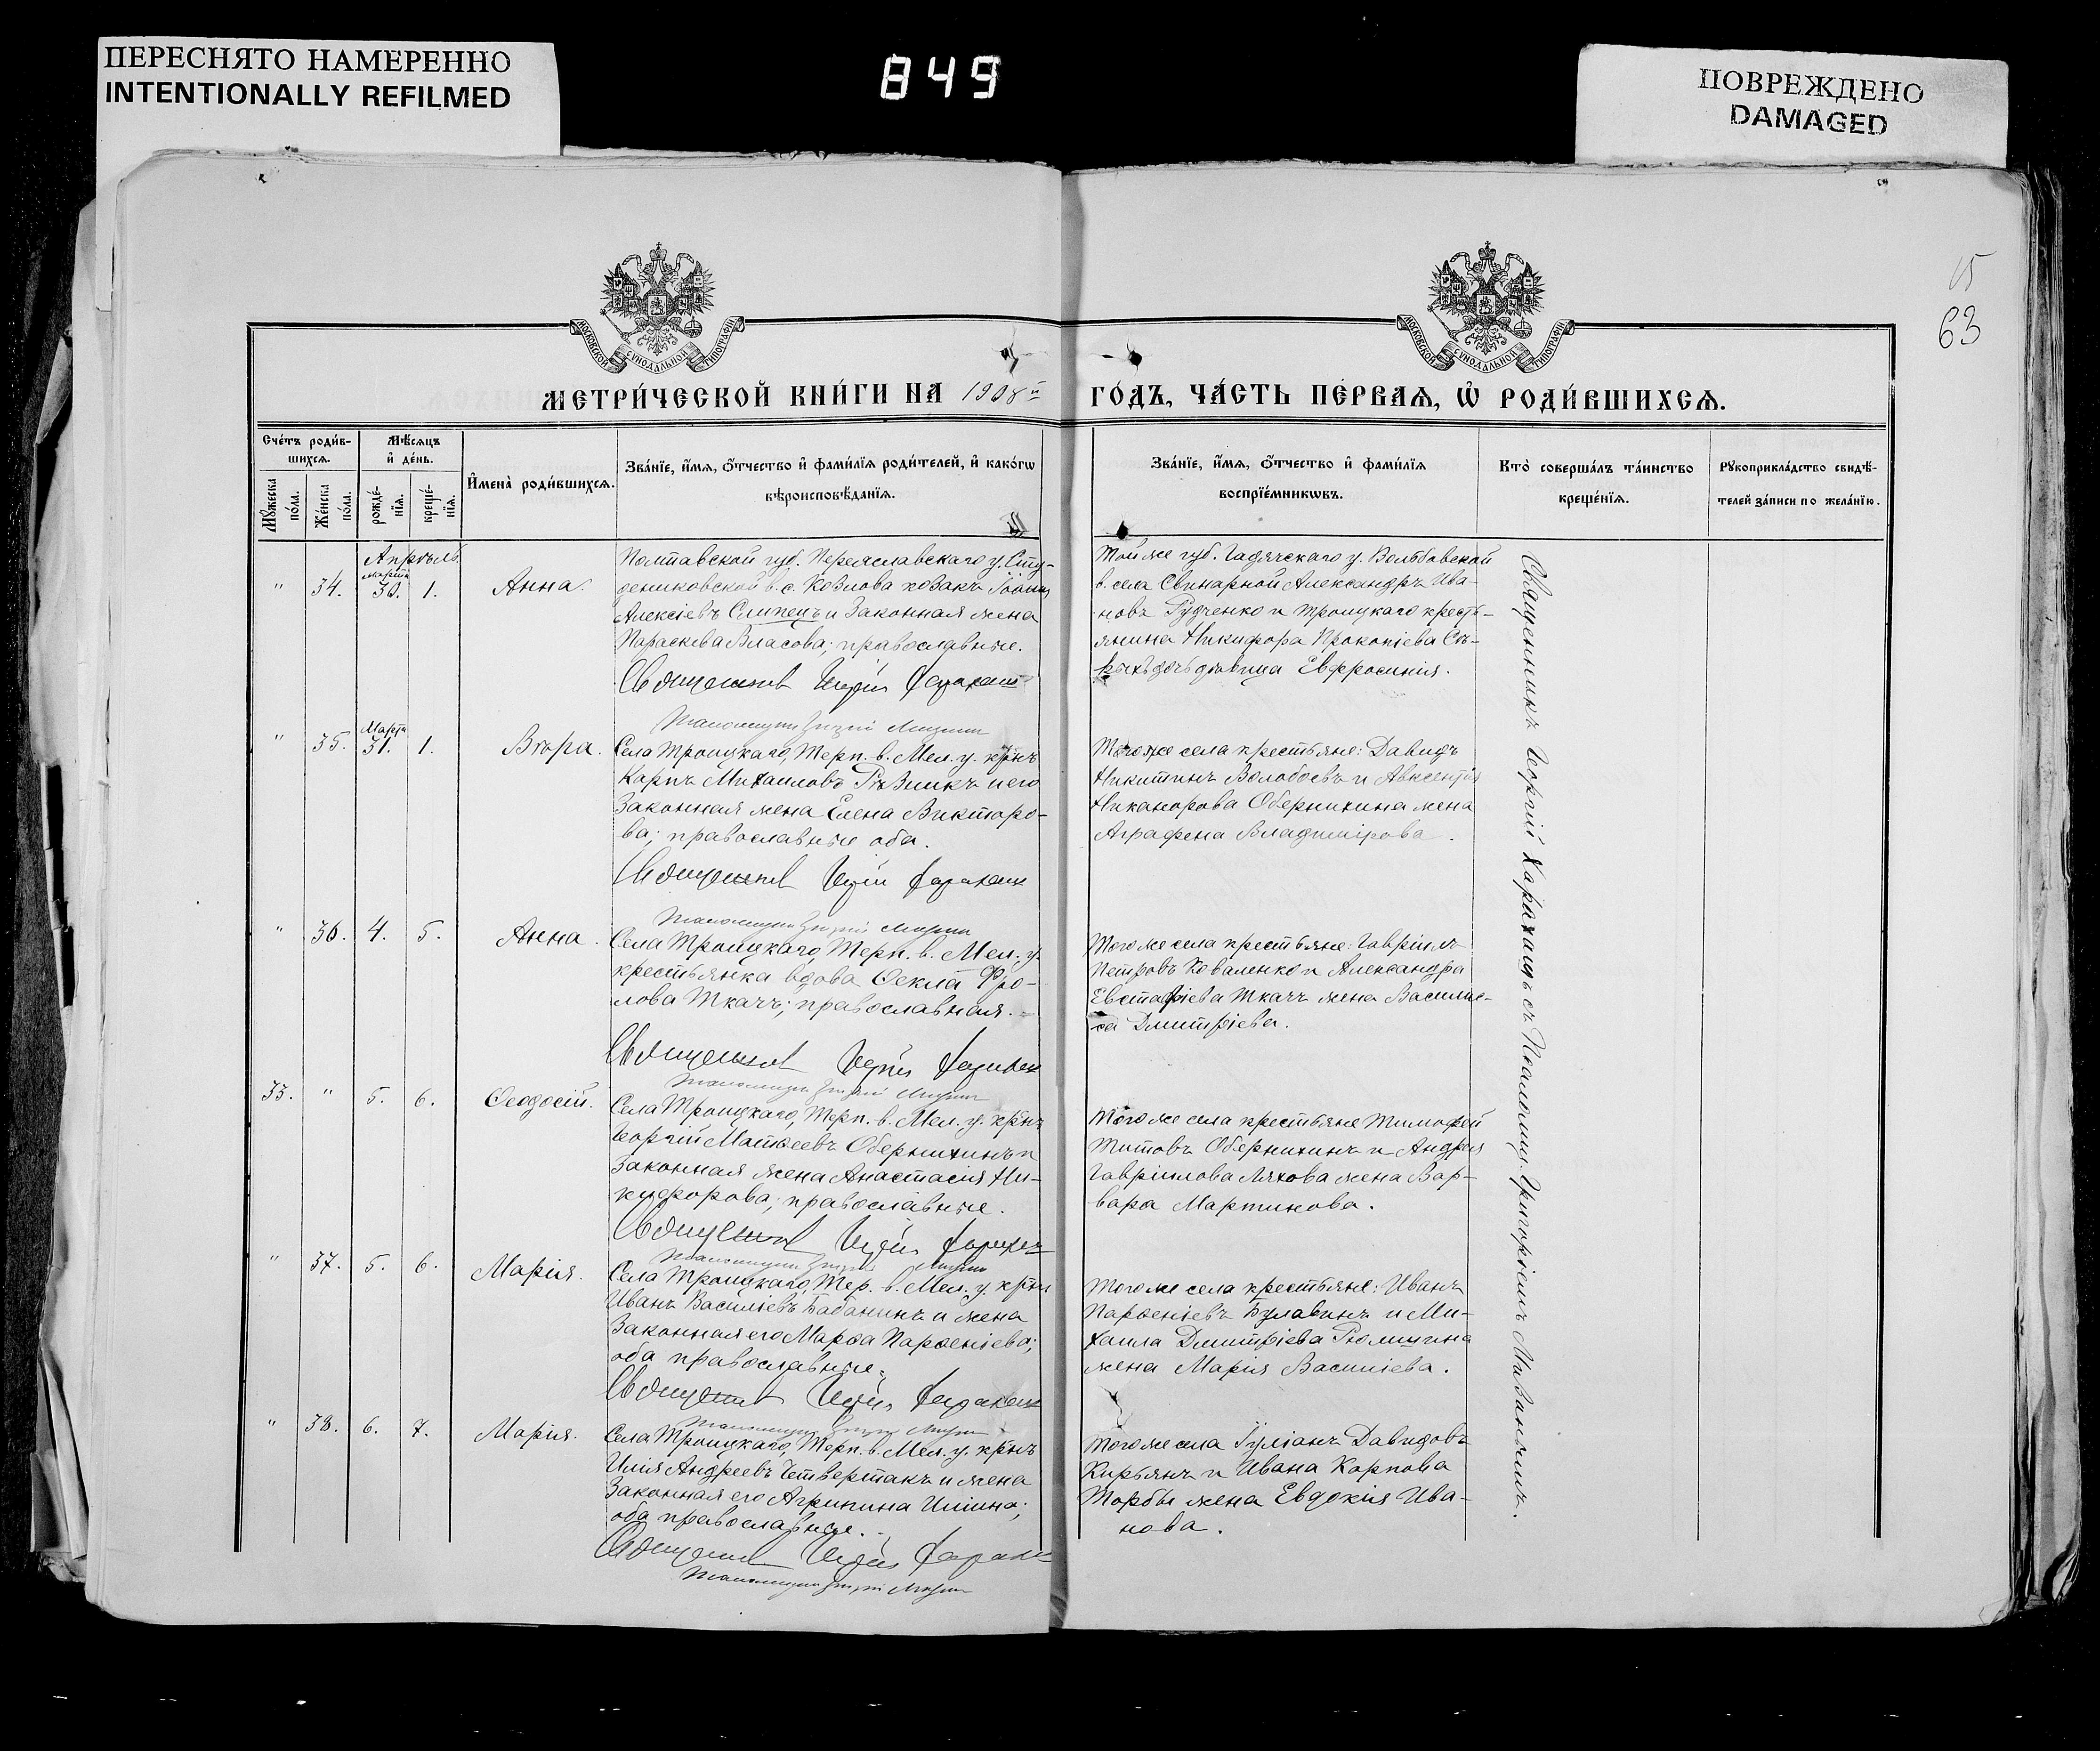 ПЕРЕСНЯТО НАМЕРЕННО
INTENTIONALLY REFILMED
849
ПОВРЕЖДЕНО
DAMAGED
15
63
МОСКОВСКОЙ СѴНОДАЛЬНОЙ ТИПОГРАФІИ
МОСКОВСКОЙ СѴНОДАЛЬНОЙ ТИПОГРАФІИ
МЕТРИ́ЧЕСКОЙ КНИ́ГИ НА 1908й
ГО́ДЪ, ЧА́СТЬ ПЕ́РВАѦ, Ѡ҆ РОДИ́ВШИХСѦ.
Сче́тъ роди́в-
шихсѧ.
Мꙋ́жеска по́ла.
Же́нска по́ла.
Мѣ́сѧцъ
и҆ де́нь.
рожде́-нїѧ.
креще́-нїѧ.
И҆мена̀ роди́вшихсѧ.
Зва́нїе, и҆́мѧ, ѻ҆́тчество и҆ фами́лїѧ роди́телей, и҆ како́гѡ
вѣроисповѣ́данїѧ.
Зва́нїе, и҆́мѧ, ѻ҆́тчество и҆ фами́лїѧ
воспрїе́мникѡвъ.
Кто̀ соверша́лъ та́инство
креще́нїѧ.
Рꙋкоприкла́дство свидѣ́-
телей за́писи по жела́нїю.
Апрѣль
" 34. Марта 30. 1. Анна.
Полтавской губ. Переяславскаго у. Сту-
дениковской в. с. Козлова козакъ Іоаннъ
Алексіевъ Слипецъ и законная жена
Параскева Власова; православные.
Священникъ Георгій Харахашъ
Псаломщикъ Григорій
Той же губ. Гадячскаго у. Вельбовской
в. села Свинарной Александръ Ива-
новъ Рудченко и Троицкаго кресть-
янина Никифора Прокопіева Съ-
дочь дѣвица Евфросинія.
" 35. Марта 31. 1. Вѣра.
Села Троицкаго, Терп. в. Мел. у. кр-нъ
Карпъ Михаиловъ Рѣзникъ и его
законная жена Елена Викторо-
ва; православные оба.
Священникъ Георгій Харахашъ
Псаломщикъ Григорій
Того же села крестьяне: Давидъ
Никитинъ Волобоевъ и Авксентія
Никанорова Обернихина жена
Аграфена Владимірова.
" 36. 4. 5. Анна.
Села Троицкаго, Терп. в. Мел. у.
крестьянка вдова Ѳекла Фро-
лова Ткачъ; православная.
Священникъ Георгій Харахашъ
Псаломщикъ Григорій
Того же села крестьяне: Гавріилъ
Петровъ Коваленко и Александра
Евстафіева Ткачъ жена Василис-
са Дмитріева.
33. " 5. 6. Ѳеодосій.
Села Троицкаго, Терп. в. Мел. у. кр-нъ
Георгій Матѳеевъ Обернихинъ и
законная жена Анастасія Ни-
кифорова; православные.
Священникъ Георгій Харахашъ
Псаломщикъ Григорій
Того же села крестьяне Тимофей
Титовъ Обернихинъ и Андрея
Гавріилова Ляхова жена Вар-
вара Мартинова.
" 37. 5. 6. Марія.
Села Троицкаго, Тер. в. Мел. у. кр-нъ
Иванъ Василіевъ Бабанинъ и жена
законная его Марѳа Парѳеніева;
оба православные.
Священникъ Георгій Харахашъ
Псаломщикъ Григорій
Того же села крестьяне: Иванъ
Парѳеніевъ Булавинъ и Ми-
хаила Дмитріева Рюмшина
жена Марія Василіева.
" 38. 6. 7. Марія.
Села Троицкаго, Терп. в. Мел. у. кр-нъ
Илія Андреевъ Четвертакъ и жена
законная его Агрипина Иліина;
оба православные.
Священникъ Георгій Харахашъ
Псаломщикъ Григорій
Того же села Іуліанъ Давидовъ
Кирьянъ и Ивана Карпова
Торбы жена Евдокія Ива-
нова.
Священникъ Георгій Харахашъ съ Псаломщ. Григоріемъ